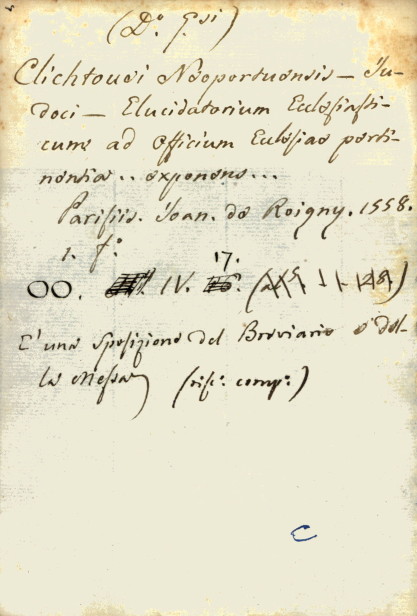 (D.º G.si)
Clichtouei Neoportuensis – Ju-
doci – Elucidatorium Ecclesiasti-
cum ad officium Eclesiae perti-
nentia .. exponens...
Parisiis. Joan. de Roigny. 1558.
1. f.º
17.
OO. IV.
E' una sposizione del Breviario e del-
la Messa (rif.: comp.:)
C